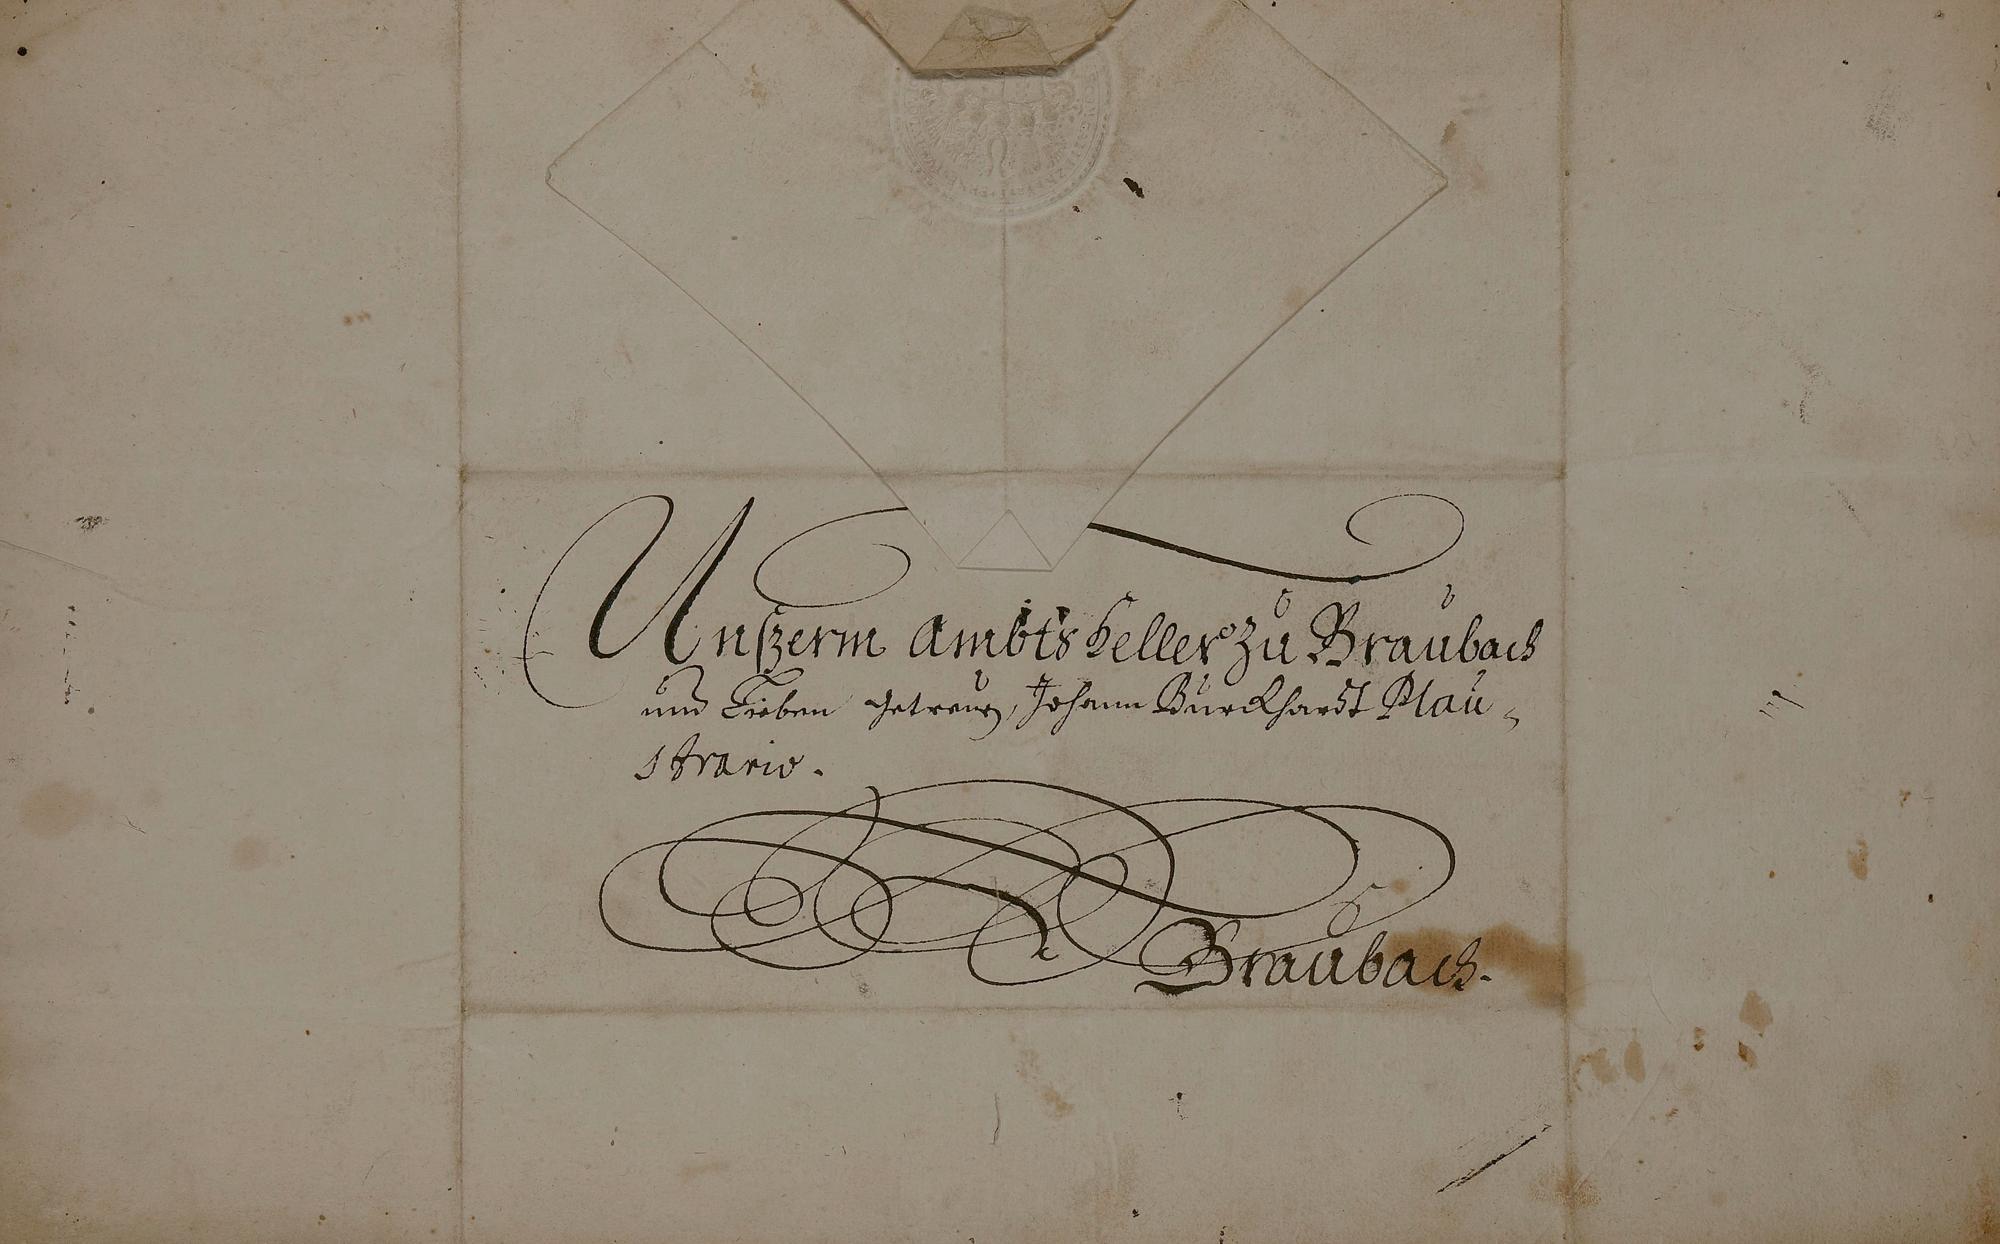 Unßerm Ambts Keller zu Braubach
und Lieben getreuen, Johann Burckhardt Plau-
strario.
Braubach.